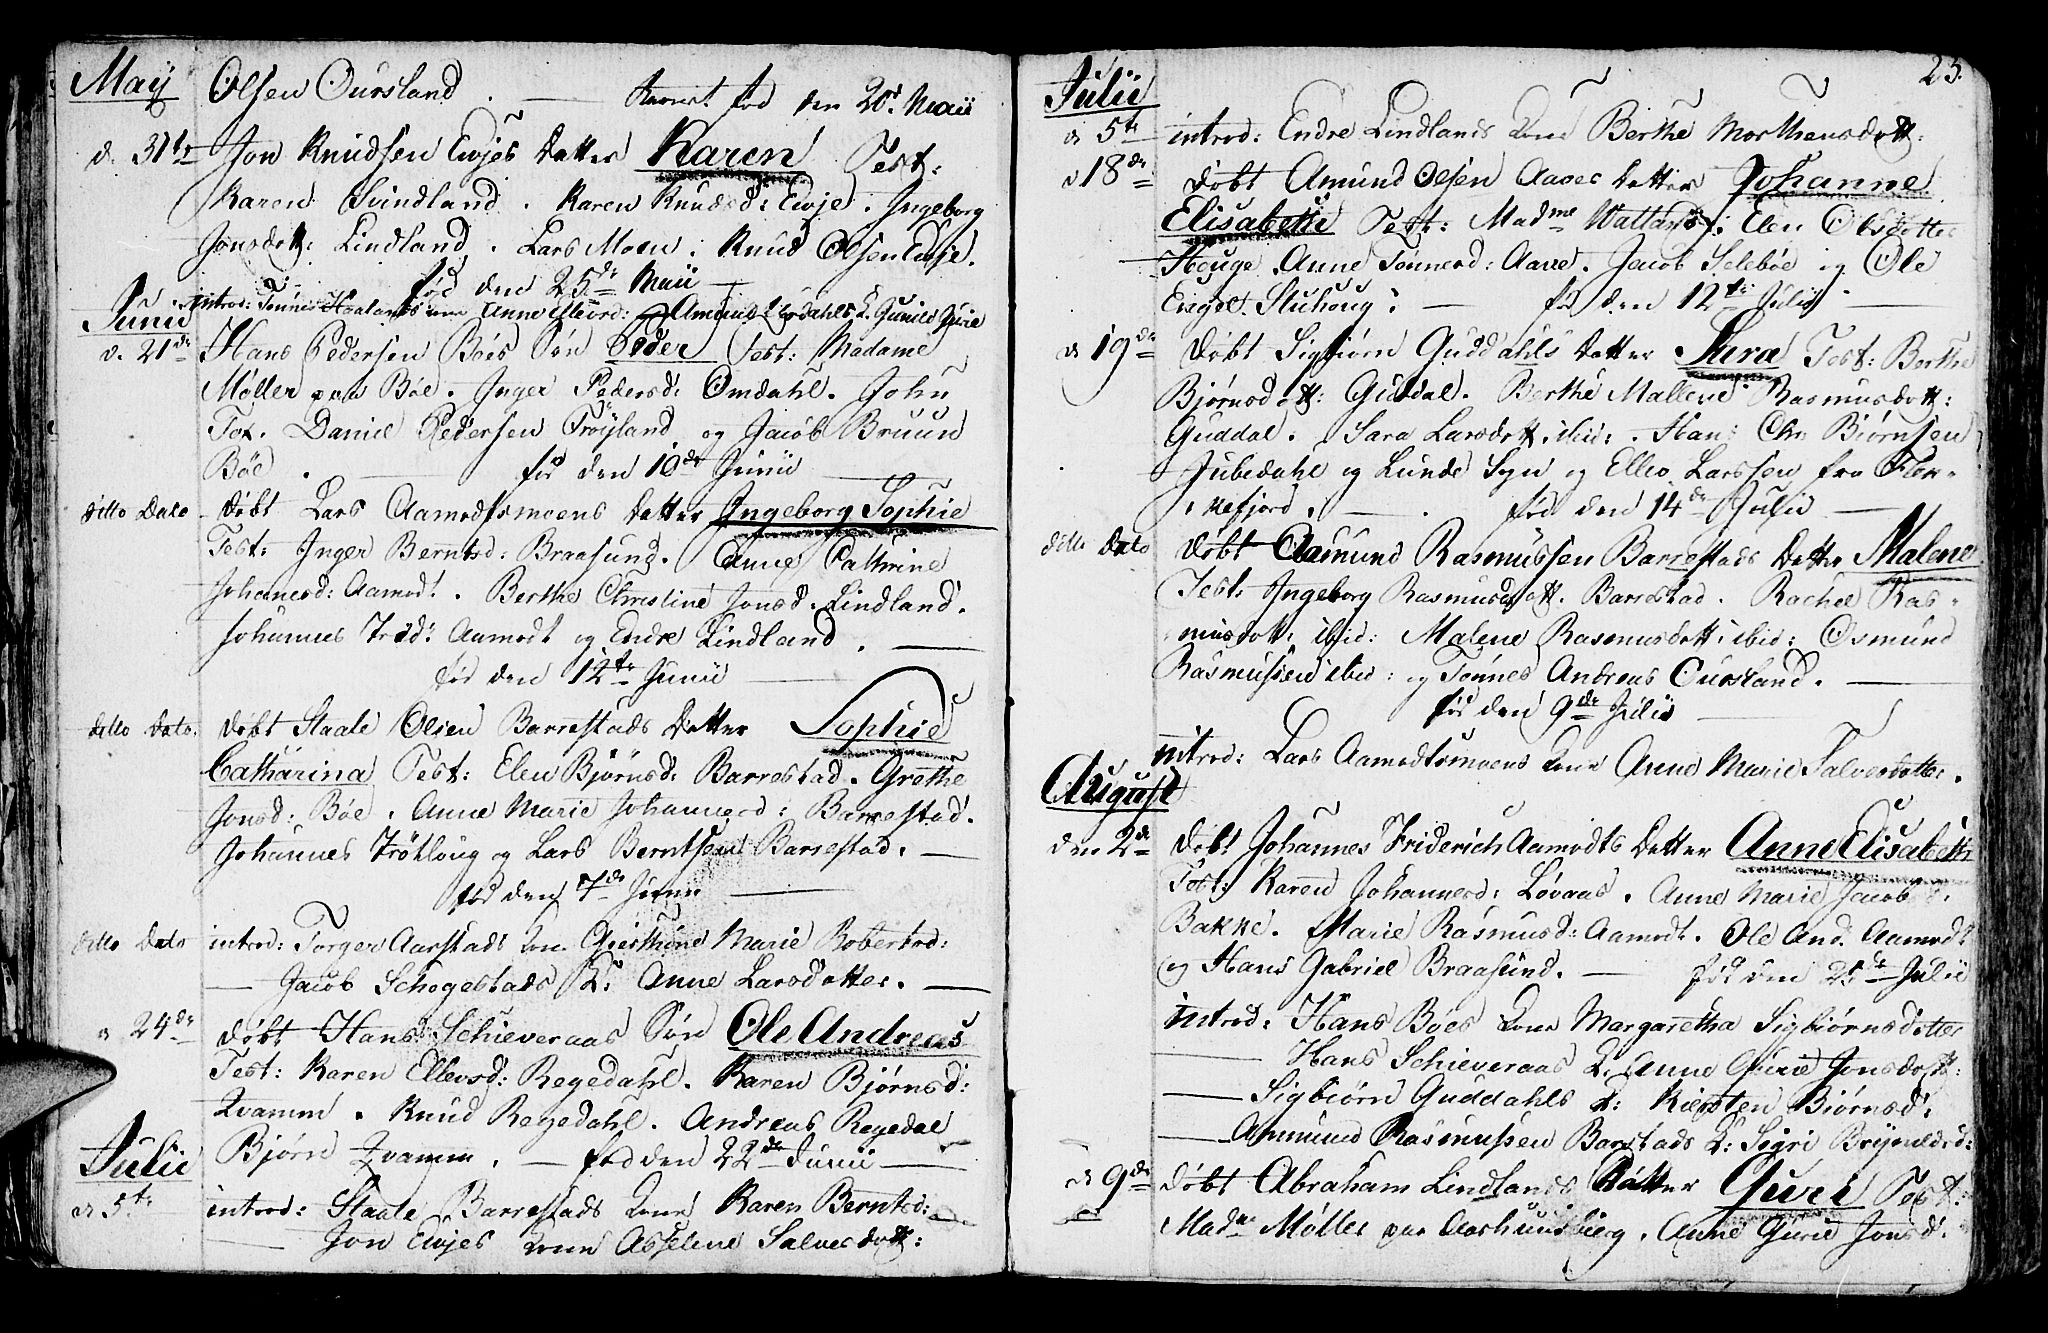 Maÿ Olsen Oursland. — Barnet fød den 20d Maii
d. 31te Jon Knudsen Evjes Datter Karen Test:
Karen Svindland. Karen Knudsd: Evje. Ingeborg
Jonsdott: Lindland. Lars Moen. Knud Olsen Evje.
fød den 25de Maii
introd: Tønnes Anne Amund Omdahls K. Gunild Gurie
Junii
d. 21de Hans Pedersen Böes Søn Peder Test: Madame
Møller paa Böe. Inger Pedersd: Omdahl. John
Daniel Pedersen Fröÿland og Jacob Bruun
Böe. — fød den 10de Junii
ditto Dato døbt Lars Aamodtsmoens Datter Ingeborg Sophie
Test: Inger Berntsd: Braasund. Anne Cathrine
Johannesd: Aamodt. Berthe Christine Jonsd: Lindland.
Johannes Frid: Aamodt og Endre Lindland.
fød den 12te Junii
ditto Dato. døbt Staale Olsen Barrestads Datter Sophie
Catharina Test: Elen Bjørnsd: Barrestad. Grethe
Jonsd: Böe. Anne Marie Johannesd: Barrestad.
Johannes Trötloug og Lars Berntsen Barrestad. —
fød den 7de Junii
ditto Dato introd: Torger Aarstads Kone Marie Robertsd:
— Jacob Schogestads K: Anne Larsdotter. —
d 24de døbt Hans Schieveraas Søn Ole Andreas
Test: Karen Ellevsd: Regedahl. Karen Bjørnsd:
Qvamm. Knud Regedahl. Andreas Regedal
Bjørn Qvamm. — fød den 22de Junii —
Julii
d 5te introd: Staale Barrestads Kone Karen Berntsd:
— Jon Evjes Kone Asselene Salvesdott:
25.
Julii
d 5te introd: Endre Lindlands Kone Berthe Morthensdott:
d 18de døbt Amund Olsen Aaves Datter Johanne
Elisabethe Test: Madme Elen Olsdotter
Houge. Anne Tønnesd: Aave. Jacob Selebøe og Ole
Engel. Stuhoug: — fød den 12te Julii
d 19de døbt Sigbjørn Guddahls Datter Sara Test: Berthe
Bjørnsdott: Guddal. Berthe Mallene Rasmusdott:
Guddal. Sara Larsdott ibid: Hans Chr Biørnsen
Jubedahl og Lunde Sogn og Ellev Larssen fra Flek-
kefjord. — fød den 14de Julii —
ditto Dato døbt Aamund Rasmussen Barrestads Datter Malene
Test: Ingeborg Rasmusdott. Barrestad. Rachel Ras-
musdott: ibid: Malene Rasmusdott: ibid: Osmund
Rasmussen ibid: og Tønnes Andreas Oursland. —
fød den 9de Julii
introd: Lars Aamodtsmoens Kone Anne Marie Salvesdotter.
August
den 2de døbt Johannes Friderich Aamodts Datter Anne Elisabeth
Test: Karen Johannesd: Løvaas. Anne Marie Jacobsd.
Bakke. Marie Rasmusd: Aamodt. Ole And. Aamodt
og Hans Gabriel Braasund. — fød den 25de Julii
introd: Hans Böes Kone Margaretha Sigbiørnsdotter
— Hans Schieveraas K. Anne Gurie Jonsdott:
— Sigbiørn Guddahls K: Kiersten Bjørnsd:
— Ammund Rasmussen Barstads K: Sigri
d 9de døbt Abraham Lindlands Datter Guri Test:
Madme Møller paa Anne Gurie Jonsd: